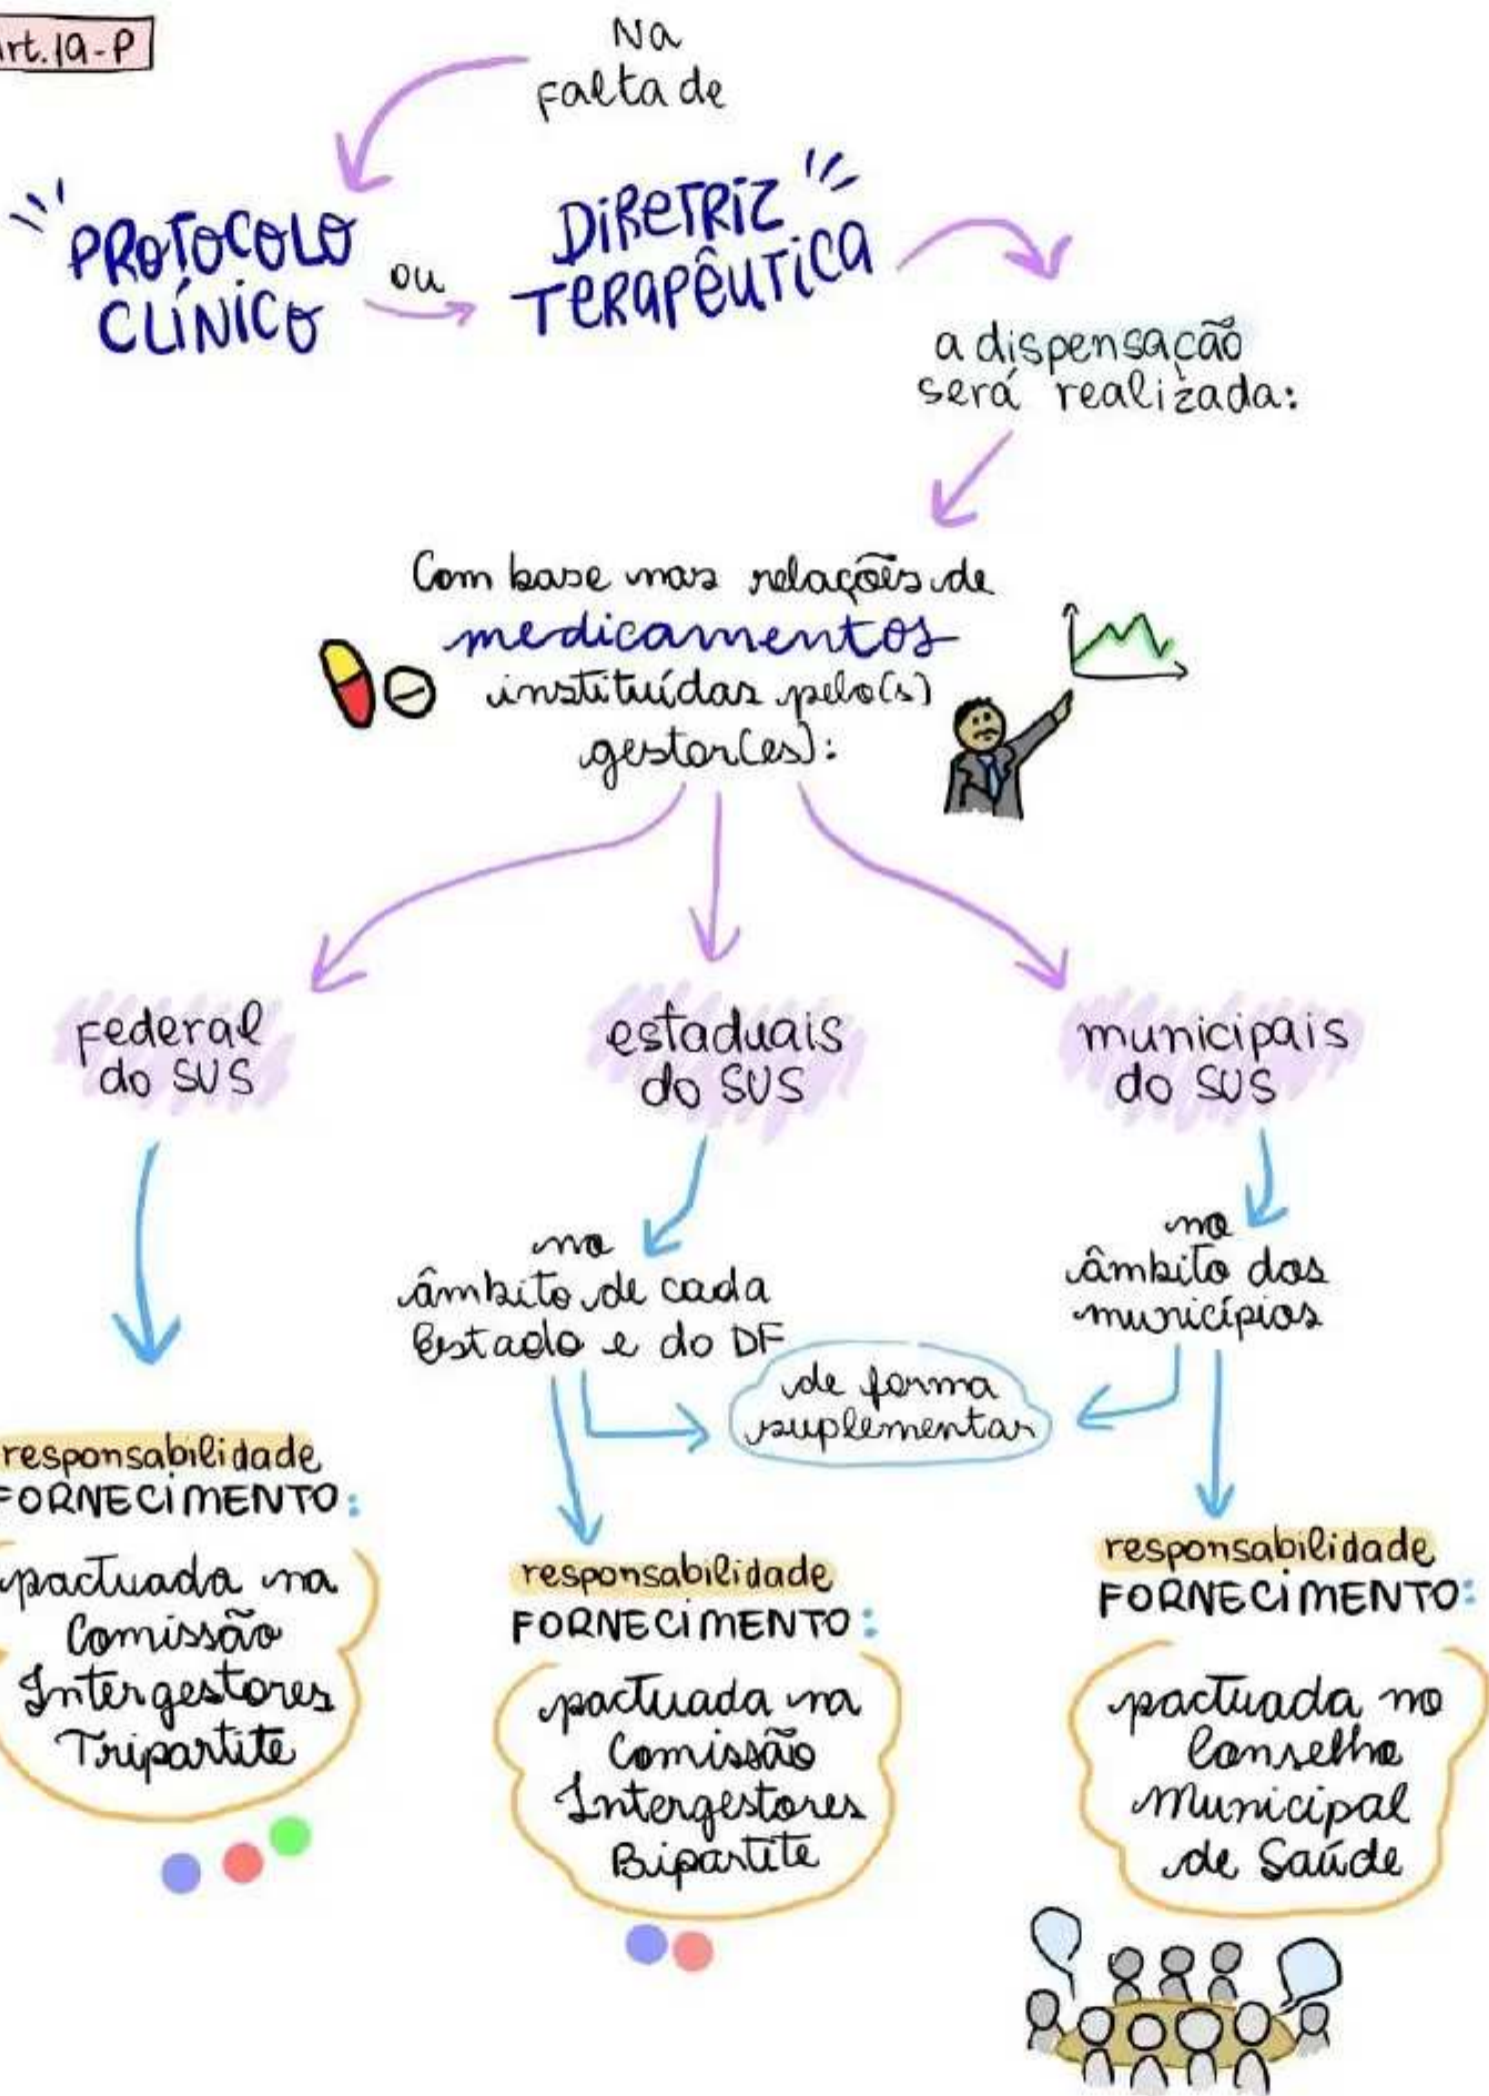 rt.19-P
Na
Falta de
PROTOCOLO
CLÍNICO
ou
DIRETRIZ
TERAPÊUTICA
a dispensação
será realizada:
Com base nas relações de
medicamentos
instituídas pelo(s)
gestor(es):
Federal
do SUS
estaduais
do SUS
municipais
do SUS
no
âmbito de cada
Estado e do DF
no
âmbito dos
municípios
de forma
suplementar
responsabilidade
FORNECIMENTO:
pactuada na
Comissão
Intergestores
Tripartite
responsabilidade
FORNECIMENTO:
pactuada na
Comissão
Intergestores
Bipartite
responsabilidade
FORNECIMENTO:
pactuada no
Conselho
Municipal
de Saúde